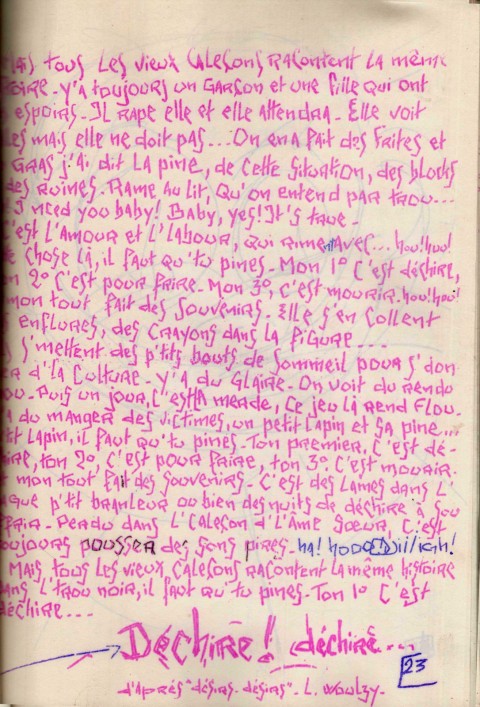 Mais tous les vieux caleçons racontent la même
toire - y'a toujours un garson et une fille qui ont
s espoirs - Il rape elle et elle attendra - Elle voit
les mais elle ne doit pas... On en a fait des frites et
gras j'ai dit la pine, de cette situation, des blocks
des ruines - Rame au lit, qu'on entend par trou...
I need you baby! Baby, yes! It's true -
c'est l'amour et l'labour, qui rime avec... hou! hou!
te chose là, il faut qu'tu pines - Mon 1° c'est déchire,
on 2° c'est pour frire - Mon 3°, c'est mourir. hou! hou!
mon tout fait des souvenirs - Elle s'en collent
s enflures, des crayons dans la figure ...
s s'mettent des p'tits bouts de sommeil pour s'don
er d'la culture - y'a du glaire - On voit du rendo
ou - Puis un jour, c'est la merde, ce jeu là rend flou -
a du manger des victimes, un petit lapin et sa pine...
tit lapin, il faut qu'tu pines - Ton premier, c'est dé-
ire, ton 2° c'est pour frire, ton 3° c'est mourir.
t mon tout fait des souvenirs - C'est des lames dans l'
aque p'tit branleur ou bien des nuits de déchire à sou
frir - Perdu dans l'caleçon d'l'âme sœur, c'est
oujours pousser des sons pires - ha!
Mais tous les vieux caleçons racontent la même histoire
dans l'trou noir, il faut qu'tu pines - Ton 1° c'est
déchire ...
Déchire! déchire...
23
d'après "désirs - désirs" - L. Woulzy -